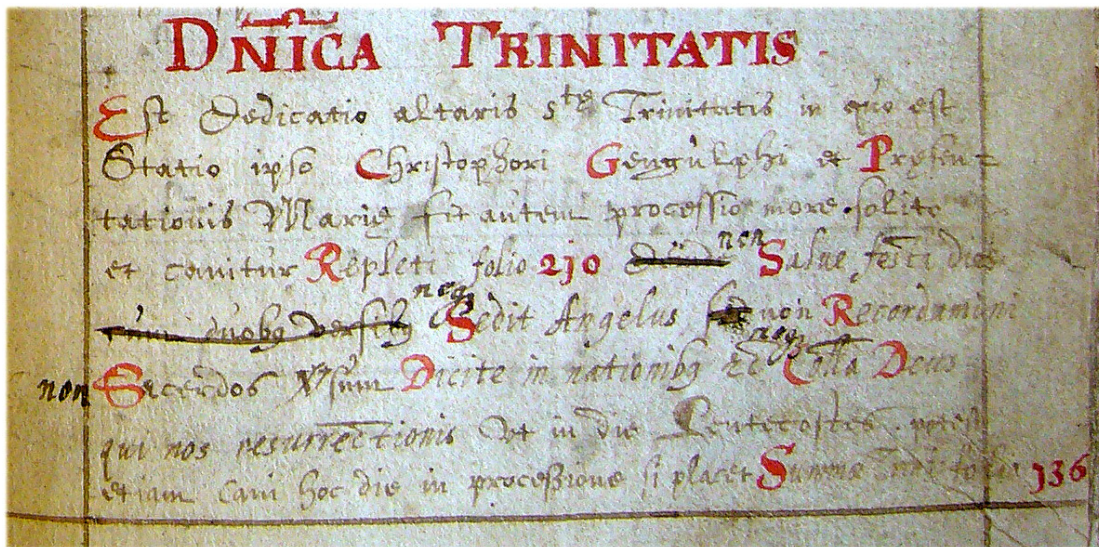 DN̄ICA TRINITATIS.
Est Dedicatio altaris s.tę Trinitatis in quo est
Statio ipso Christophori Gengulphi et Pręsen=
tationis Marię fit autem processio more solito
et canitur Repleti folio 210 non Salue festi dies
cum duobꝫ neqꝫ Sedit Angelus, non Recordamini
non Sacerdos Dicite in nationibꝫ neqꝫ Colla Deus
qui nos resurrectionis Vt in die Pentecostes. potest
etiam cani hoc die in processione si placet Summę 136